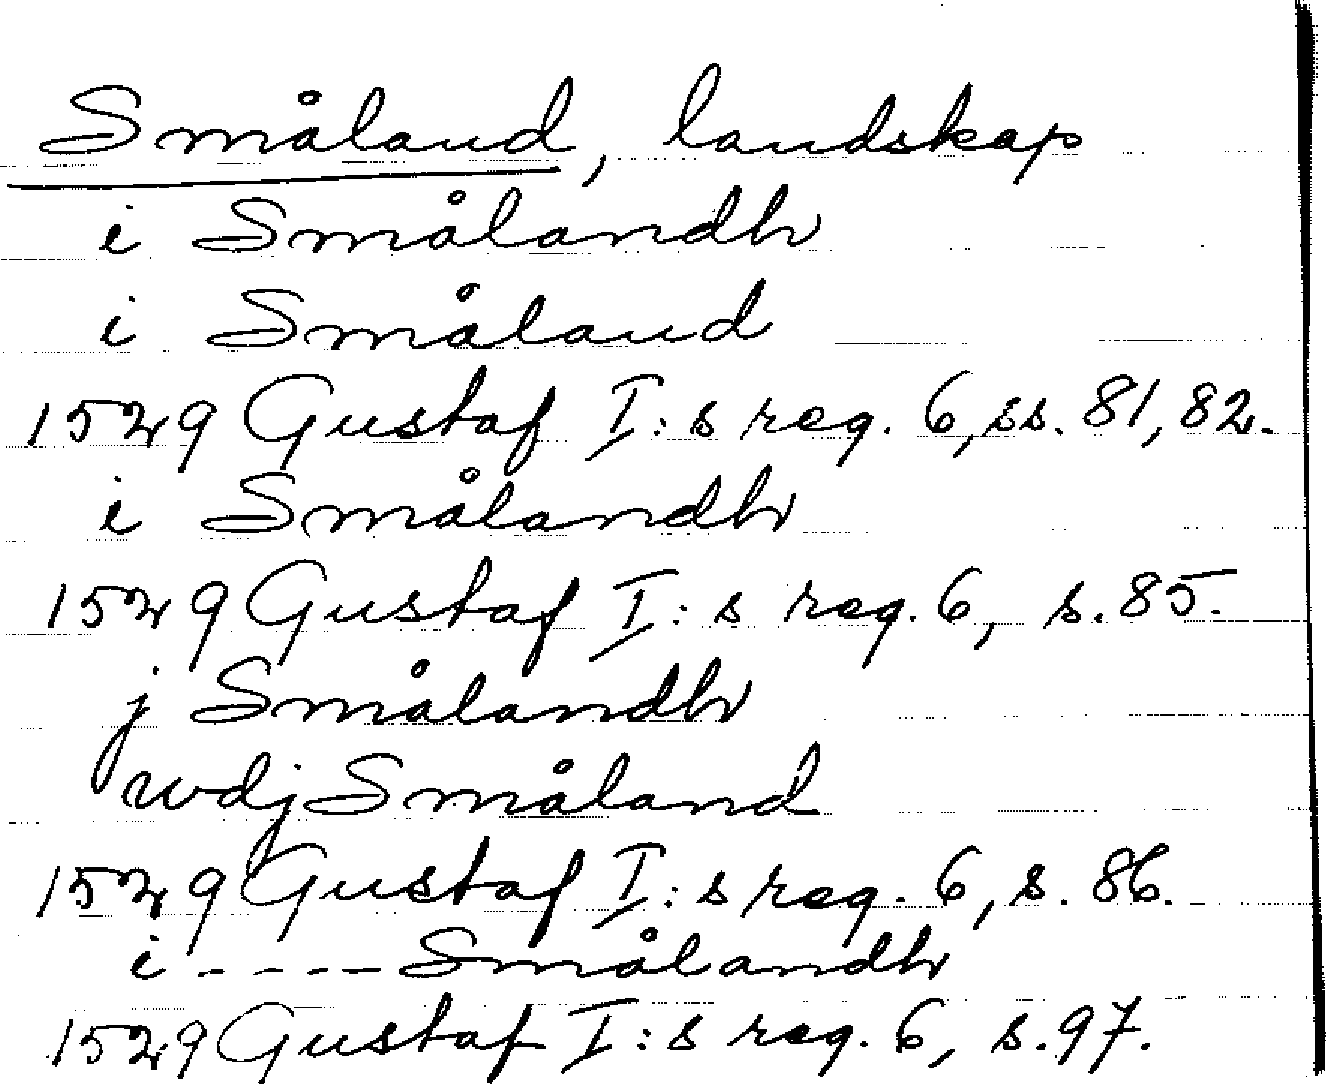 Småland, landskap
i Smålandh
i Småland
1529 Gustaf I:s reg. 6, ss. 81, 82.
i Smålandh
1529 Gustaf I:s reg. 6, s. 85.
j Smålandh
wdj Småland
1529 Gustaf I:s reg. 6, s. 86.
i - - - - Smålandh
1529 Gustaf I:s reg. 6, s. 97.